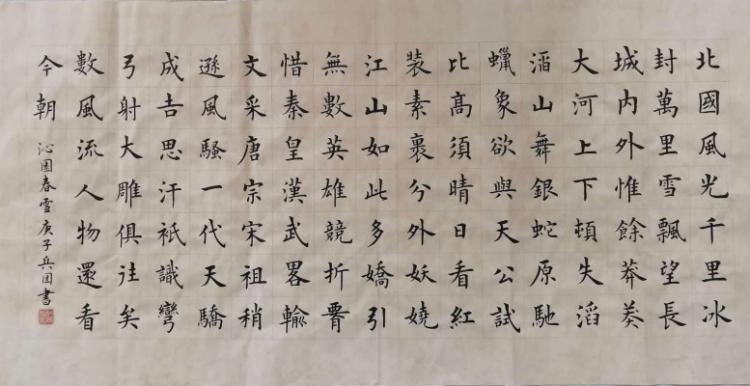 北國風光千里冰
封萬里雪飄望長
城内外惟餘莽莽
大河上下頓失滔
滔山舞銀蛇原馳
蠟象欲與天公試
比髙須晴日看紅
装素裹分外妖嬈
江山如此多嬌引
無數英雄競折腰
惜秦皇漢武畧輸
文采唐宗宋祖稍
遜風騷一代天驕
成吉思汗衹識彎
弓射大雕俱往矣
數風流人物還看
今朝 沁園春雪庚子兵因書